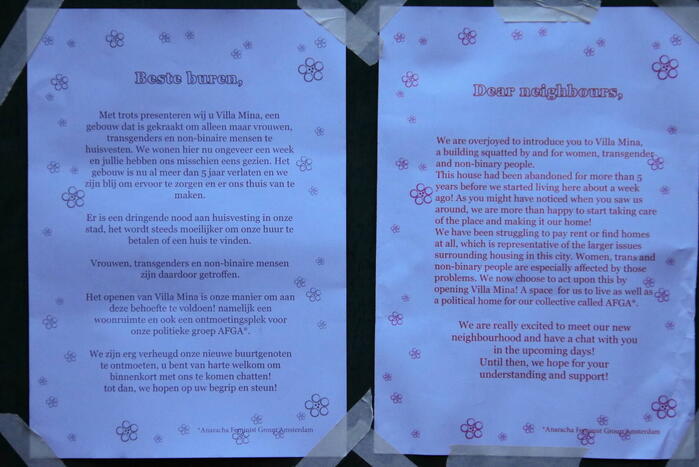 Beste buren,
Met trots presenteren wij u Villa Mina, een
gebouw dat is gekraakt om alleen maar vrouwen,
transgenders en non-binaire mensen te
huisvesten. We wonen hier nu ongeveer een week
en jullie hebben ons misschien eens gezien. Het
gebouw is nu al meer dan 5 jaar verlaten en we
zijn blij om ervoor te zorgen en er ons thuis van te
maken.
Er is een dringende nood aan huisvesting in onze
stad, het wordt steeds moeilijker om onze huur te
betalen of een huis te vinden.
Vrouwen, transgenders en non-binaire mensen
zijn daardoor getroffen.
Het openen van Villa Mina is onze manier om aan
deze behoefte te voldoen! namelijk een
woonruimte en ook een ontmoetingsplek voor
onze politieke groep AFGA*.
We zijn erg verheugd onze nieuwe buurtgenoten
te ontmoeten, u bent van harte welkom om
binnenkort met ons te komen chatten!
tot dan, we hopen op uw begrip en steun!
*Anaracha Feminist Group Amsterdam
Dear neighbours,
We are overjoyed to introduce you to Villa Mina,
a building squatted by and for women, transgender
and non-binary people.
This house had been abandoned for more than 5
years before we started living here about a week
ago! As you might have noticed when you saw us
around, we are more than happy to start taking care
of the place and making it our home!
We have been struggling to pay rent or find homes
at all, which is representative of the larger issues
surrounding housing in this city. Women, trans and
non-binary people are especially affected by those
problems. We now choose to act upon this by
opening Villa Mina! A space for us to live as well as
a political home for our collective called AFGA*.
We are really excited to meet our new
neighbourhood and have a chat with you
in the upcoming days!
Until then, we hope for your
understanding and support!
*Anaracha Feminist Group Amsterdam